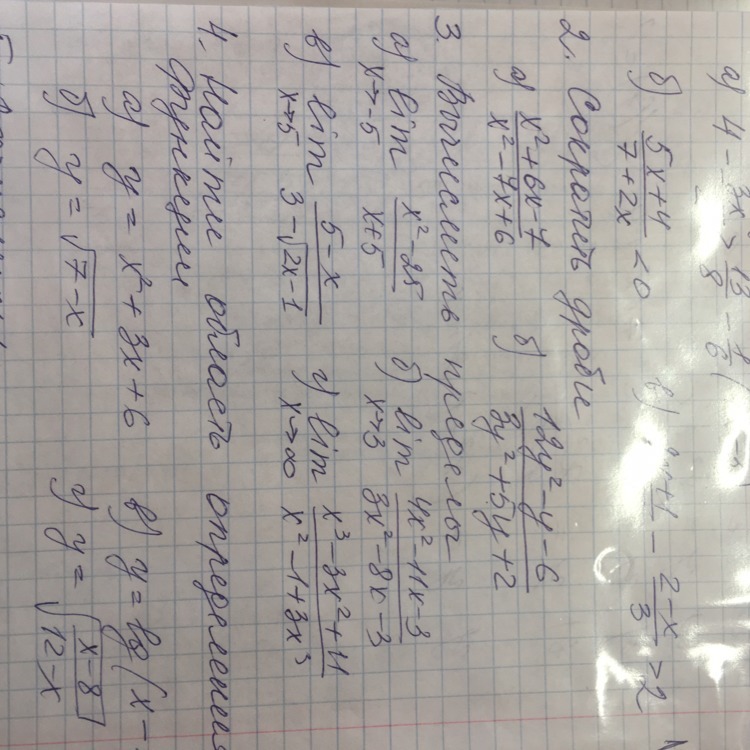 а) 4 - 3x >
б) (5x+4)/(7+2x) < 0 в) - (2-x)/3 > 2
2. Сократить дроби
а) (x²+6x-7)/(x²-7x+6) б) (12y²-y-6)/(3y²+5y+2)
3. Вычислить пределы
а) lim x→-5 (x²-25)/(x+5) б) lim x→3 (4x²-11x-3)/(3x²-8x-3)
в) lim x→5 (5-x)/(3-√(2x-1)) г) lim x→∞ (x³-3x²+11)/(x²-1+3x³)
4. Найти область определения
функции
а) y = x²+3x+6 в) y = lg(x -
б) y = √(7-x) г) y = √((x-8)/(12-x))